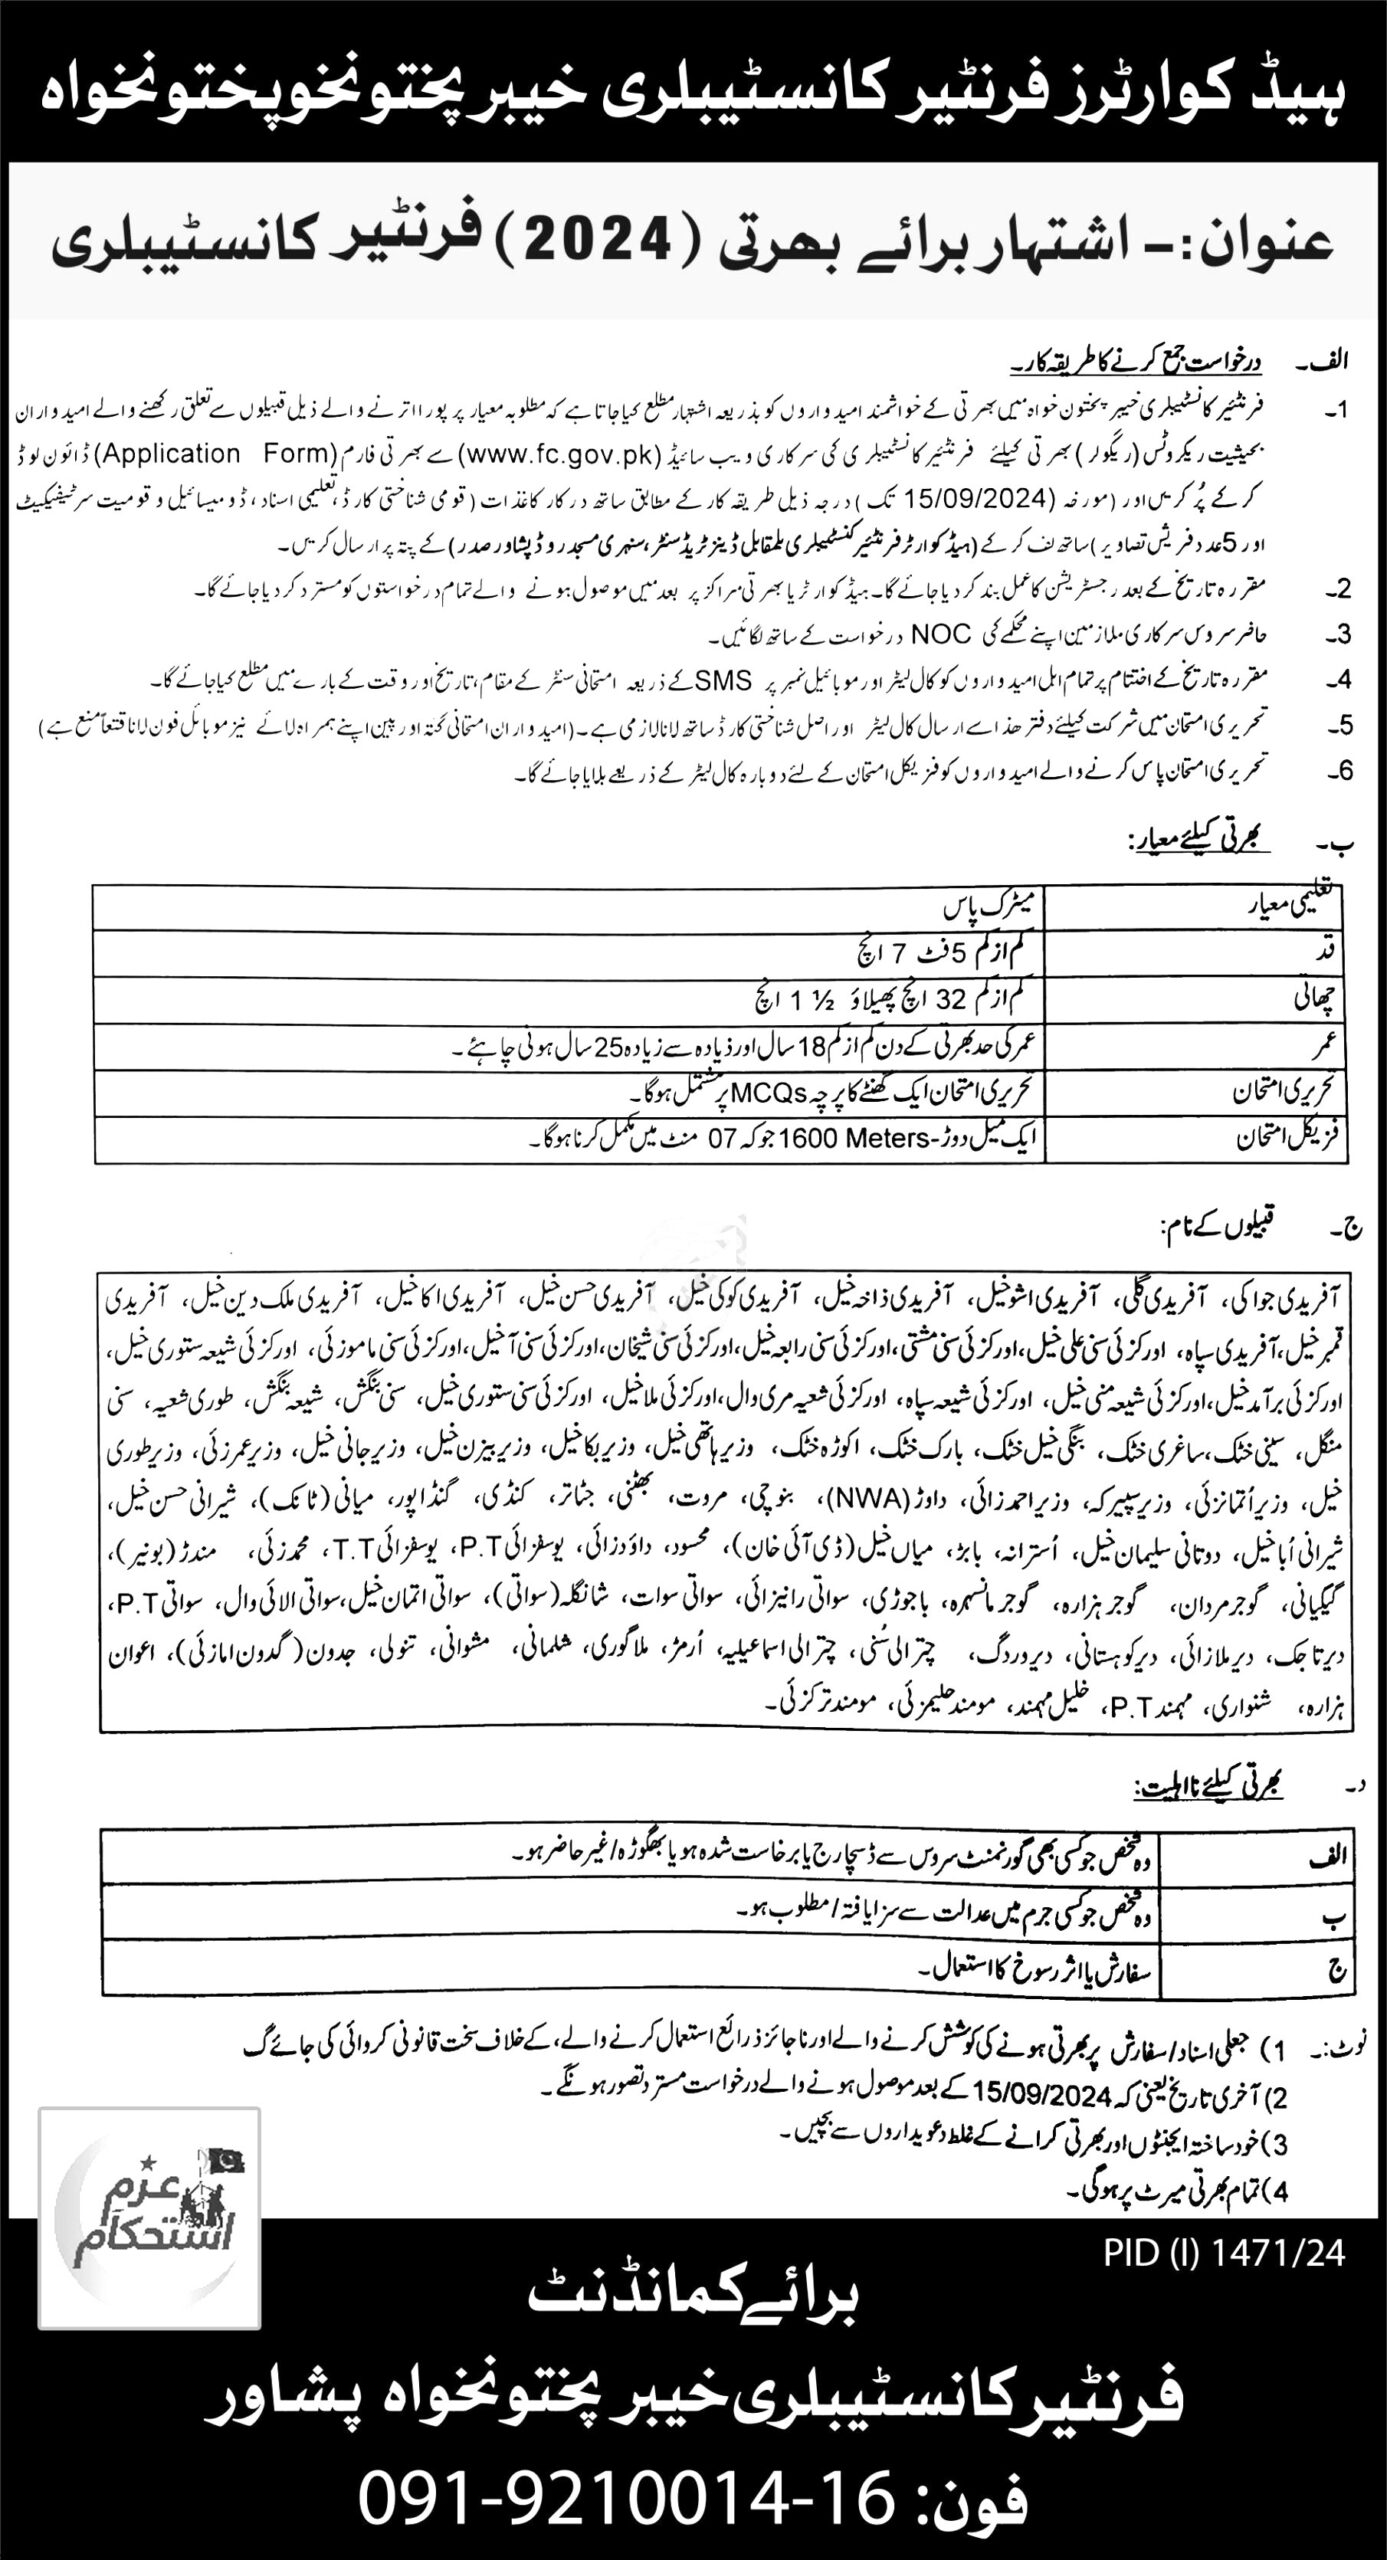 ہیڈ کوارٹرز فرنٹیر کانسٹیبلری خیبر پختونخوپختونخواہ
عنوان:- اشتہار برائے بھرتی (2024) فرنٹیر کانسٹیبلری
الف۔ درخواست جمع کرنے کا طریقہ کار۔
1۔ فرنٹیئر کانسٹیبلری خیبر پختون خواہ میں بھرتی کے خواشمند امیدواروں کو بذریعہ اشتہار مطلع کیا جاتا ہے کہ مطلوبہ معیار پر پورا اترنے والے ذیل قبیلوں سے تعلق رکھنے والے امیدواران
بحیثیت ریکروٹس (ریگولر) بھرتی کیلئے فرنٹیئر کانسٹیبلری کی سرکاری ویب سائیڈ (www.fc.gov.pk) سے بھرتی فارم (Application Form) ڈائون لوڈ
کر کے پُر کریں اور (مورخہ 15/09/2024 تک) درجہ ذیل طریقہ کار کے مطابق ساتھ درکار کاغذات (قومی شناختی کارڈ، تعلیمی اسناد، ڈومیسائیل و قومیت سرٹیفیکیٹ
اور 5 عدد فریش تصاویر) ساتھ لف کر کے (ہیڈ کوارٹر فرنٹیئر کنسٹیبلری بلمقابل ڈینز ٹریڈ سنٹر، سنہری مسجد روڈ پشاور صدر) کے پتہ پر ارسال کریں۔
2۔ مقررہ تاریخ کے بعد رجسٹریشن کا عمل بند کر دیا جائے گا۔ ہیڈ کوارٹر یا بھرتی مراکز پر بعد میں موصول ہونے والے تمام درخواستوں کو مسترد کر دیا جائے گا۔
3۔ حاضر سروس سرکاری ملازمین اپنے محکمے کی NOC درخواست کے ساتھ لگائیں۔
4۔ مقررہ تاریخ کے اختتام پر تمام اہل امیدواروں کو کال لیٹر اور موبائیل نمبر پر SMS کے ذریعہ امتحانی سنٹر کے مقام، تاریخ اور وقت کے بارے میں مطلع کیا جائے گا۔
5۔ تحریری امتحان میں شرکت کیلئے دفتر ھذا سے ارسال کال لیٹر اور اصل شناختی کارڈ ساتھ لانا لازمی ہے۔ (امیدواران امتحانی گتہ اور پین اپنے ہمراہ لائے نیز موبائل فون لانا قتعاً منع ہے)
6۔ تحریری امتحان پاس کرنے والے امیدواروں کو فزیکل امتحان کے لئے دوبارہ کال لیٹر کے ذریعے بلایا جائے گا۔
ب۔ بھرتی کیلئے معیار:
تعلیمی معیار میٹرک پاس
قد کم از کم 5 فٹ 7 انچ
چھاتی کم از کم 32 انچ پھیلاؤ ½ 1 انچ
عمر عمر کی حد بھرتی کے دن کم از کم 18 سال اور زیادہ سے زیادہ 25 سال ہونی چاہئے۔
تحریری امتحان تحریری امتحان ایک گھنٹے کا پرچہ MCQs پر مشتمل ہوگا۔
فزیکل امتحان ایک میل دوڑ-1600 Meters جو کہ 07 منٹ میں مکمل کرنا ہوگا۔
ج۔ قبیلوں کے نام:
آفریدی جواکی، آفریدی گلی، آفریدی اشوخیل، آفریدی ذاخہ خیل، آفریدی کوکی خیل، آفریدی حسن خیل، آفریدی اکا خیل، آفریدی ملک دین خیل، آفریدی
قمبر خیل، آفریدی سپاہ، اورکزئی سنی علی خیل، اورکزئی سنی مشتی، اورکزئی سنی رابعہ خیل، اورکزئی سنی شیخان، اورکزئی سنی آخیل، اورکزئی سنی ماموزئی، اورکزئی شیعہ ستوری خیل،
اورکزئی برآمد خیل، اورکزئی شیعہ منی خیل، اورکزئی شیعہ سپاہ، اورکزئی شعیہ مری وال، اورکزئی ملا خیل، اورکزئی سنی ستوری خیل، سنی بنگش، شیعہ بنگش، طوری شعیہ، سنی
منگل، سینی خٹک، ساغری خٹک، بنگی خیل خٹک، بارک خٹک، اکوڑہ خٹک، وزیر ہاتھی خیل، وزیر بکا خیل، وزیر بیزن خیل، وزیر جانی خیل، وزیر عمرزئی، وزیر طوری
خیل، وزیر اُتمانزئی، وزیر سپیرکہ، وزیر احمد زائی، داوڑ (NWA)، بنوچی، مروت، بھٹنی، جٹاتر، کنڈی، گنڈاپور، میانی (ٹانک)، شیرانی حسن خیل،
شیرانی اُبا خیل، دوتانی سلیمان خیل، اُسترانہ، بابڑ، میاں خیل (ڈی آئی خان)، محسود، داؤدزائی، یوسفزائی P.T، یوسفزائی T.T، محمدزئی، مندڑ (بونیر)،
گیگیانی، گوجر مردان، گوجر ہزارہ، گوجر مانسہرہ، باجوڑی، سواتی رانیزائی، سواتی سوات، شانگلہ (سواتی)، سواتی اتمان خیل، سواتی الائی وال، سواتی P.T،
دیر تاجک، دیر ملازائی، دیر کوہستانی، دیر وردگ، چترالی سُنی، چترالی اسماعیلیہ، اُرمڑ، ملاگوری، شلمانی، مشوانی، تنولی، جدون (گدون امازئی)، اعوان
ہزارہ، شنواری، مہمند P.T، خلیل مہمند، مومند حلیمزئی، مومند ترکزئی۔
د۔ بھرتی کیلئے نااہلیت:
الف وہ شخص جو کسی بھی گورنمنٹ سروس سے ڈسچارج یا برخاست شدہ ہو یا بھگوڑہ/غیر حاضر ہو۔
ب وہ شخص جو کسی جرم میں عدالت سے سزا یافتہ/مطلوب ہو۔
ج سفارش یا اثر رسوخ کا استعمال۔
نوٹ:۔ 1) جعلی اسناد/سفارش پر بھرتی ہونے کی کوشش کرنے والے اور ناجائز ذرائع استعمال کرنے والے، کے خلاف سخت قانونی کروائی کی جائے گ
2) آخری تاریخ یعنی کہ 15/09/2024 کے بعد موصول ہونے والے درخواست مسترد تصور ہونگے۔
3) خود ساختہ ایجنٹوں اور بھرتی کرانے کے غلط دعویداروں سے بچیں۔
4) تمام بھرتی میرٹ پر ہوگی۔
عزم
استحکام
PID (I) 1471/24
برائے کمانڈنٹ
فرنٹیر کانسٹیبلری خیبر پختونخواہ پشاور
فون: 091-9210014-16